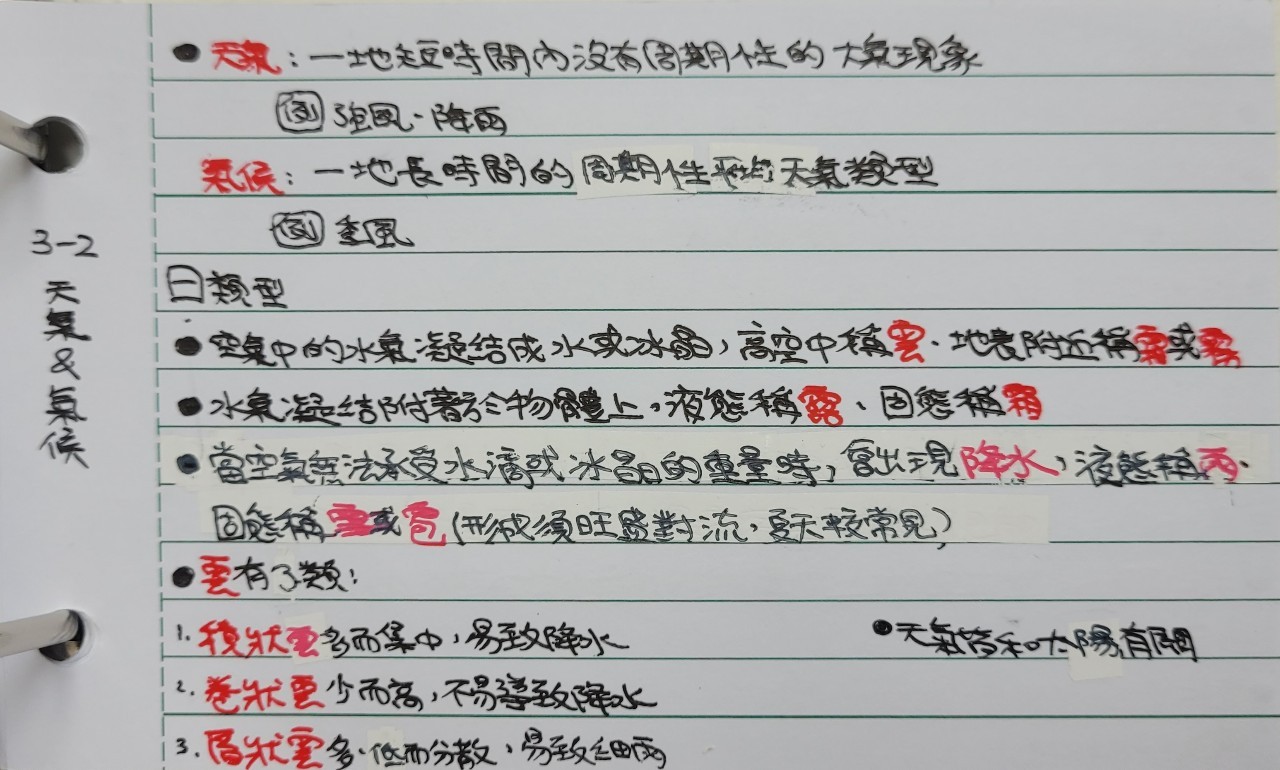 3-2 天氣&氣候
● 天氣：一地短時間內沒有周期性的大氣現象
例 強風、降雨
氣候：一地長時間的周期性平均天氣類型
例 季風
日類型
● 空氣中的水氣凝結成水或冰晶，高空中稱雲、地表附近稱霧或靄
● 水氣凝結附著於物體上，液態稱露、固態稱霜
● 當空氣無法承受水滴或冰晶的重量時，會出現降水，液態稱雨、
固態稱雪或雹(形成須旺盛對流，夏天較常見)
● 雲有3類：
1. 積狀雲多而集中，易致降水
● 天氣皆和太陽有關
2. 卷狀雲少而高，不易導致降水
3. 層狀雲多、低而分散，易致細雨